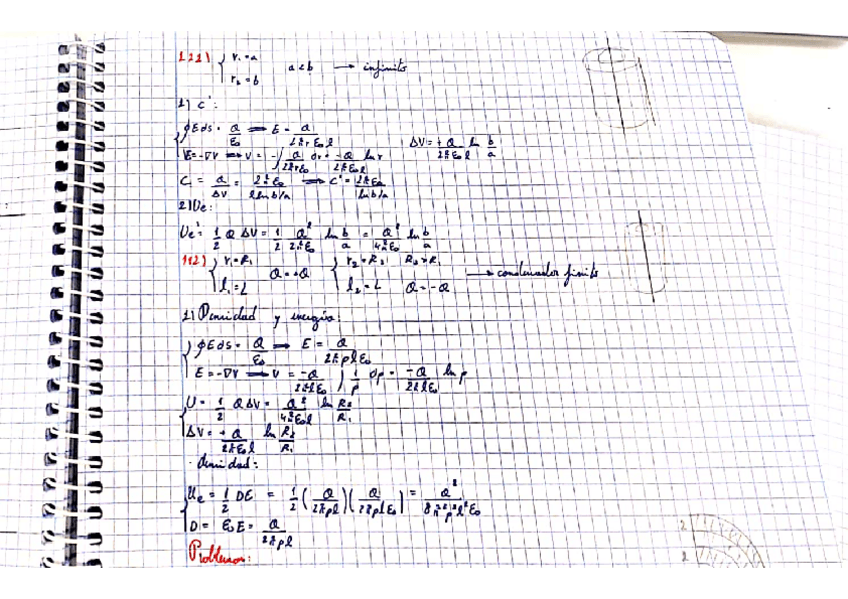 111) { r₁ = a   a < b → infinito
r₂ = b
1) C':
∮E ds = Q/ε₀ ⟹ E = Q/2πrε₀l
E = -∇V ⟹ V = -∫ Q/2πrε₀ dr = -Q/2πε₀l ln r   ΔV = +Q/2πε₀l ln b/a
C = Q/ΔV = 2πε₀/l ln b/a ⟹ C' = 2πε₀/ln b/a
2) Ue:
Ue' = 1/2 Q ΔV = 1/2 Q²/2πε₀ ln b/a = Q²/4πε₀ ln b/a
112) { r₁ = R₁   Q = +Q   { r₂ = R₂   R₂ > R₁ → condensador finito
l₁ = L   l₂ = L   Q = -Q
1) Densidad y energía:
∮E ds = Q/ε₀ ⟹ E = Q/2πρlε₀
E = -∇V ⟹ V = -Q/2πlε₀ ∫ 1/ρ dρ = -Q/2πlε₀ ln ρ
U = 1/2 Q ΔV = Q²/4πε₀l ln R₂/R₁
ΔV = +Q/2πε₀l ln R₂/R₁
· densidad:
Ue = 1/2 DE = 1/2 (Q/2πρl)(Q/2πρlε₀) = Q²/8π²ρ²l²ε₀
D = ε₀E = Q/2πρl
Problemas: